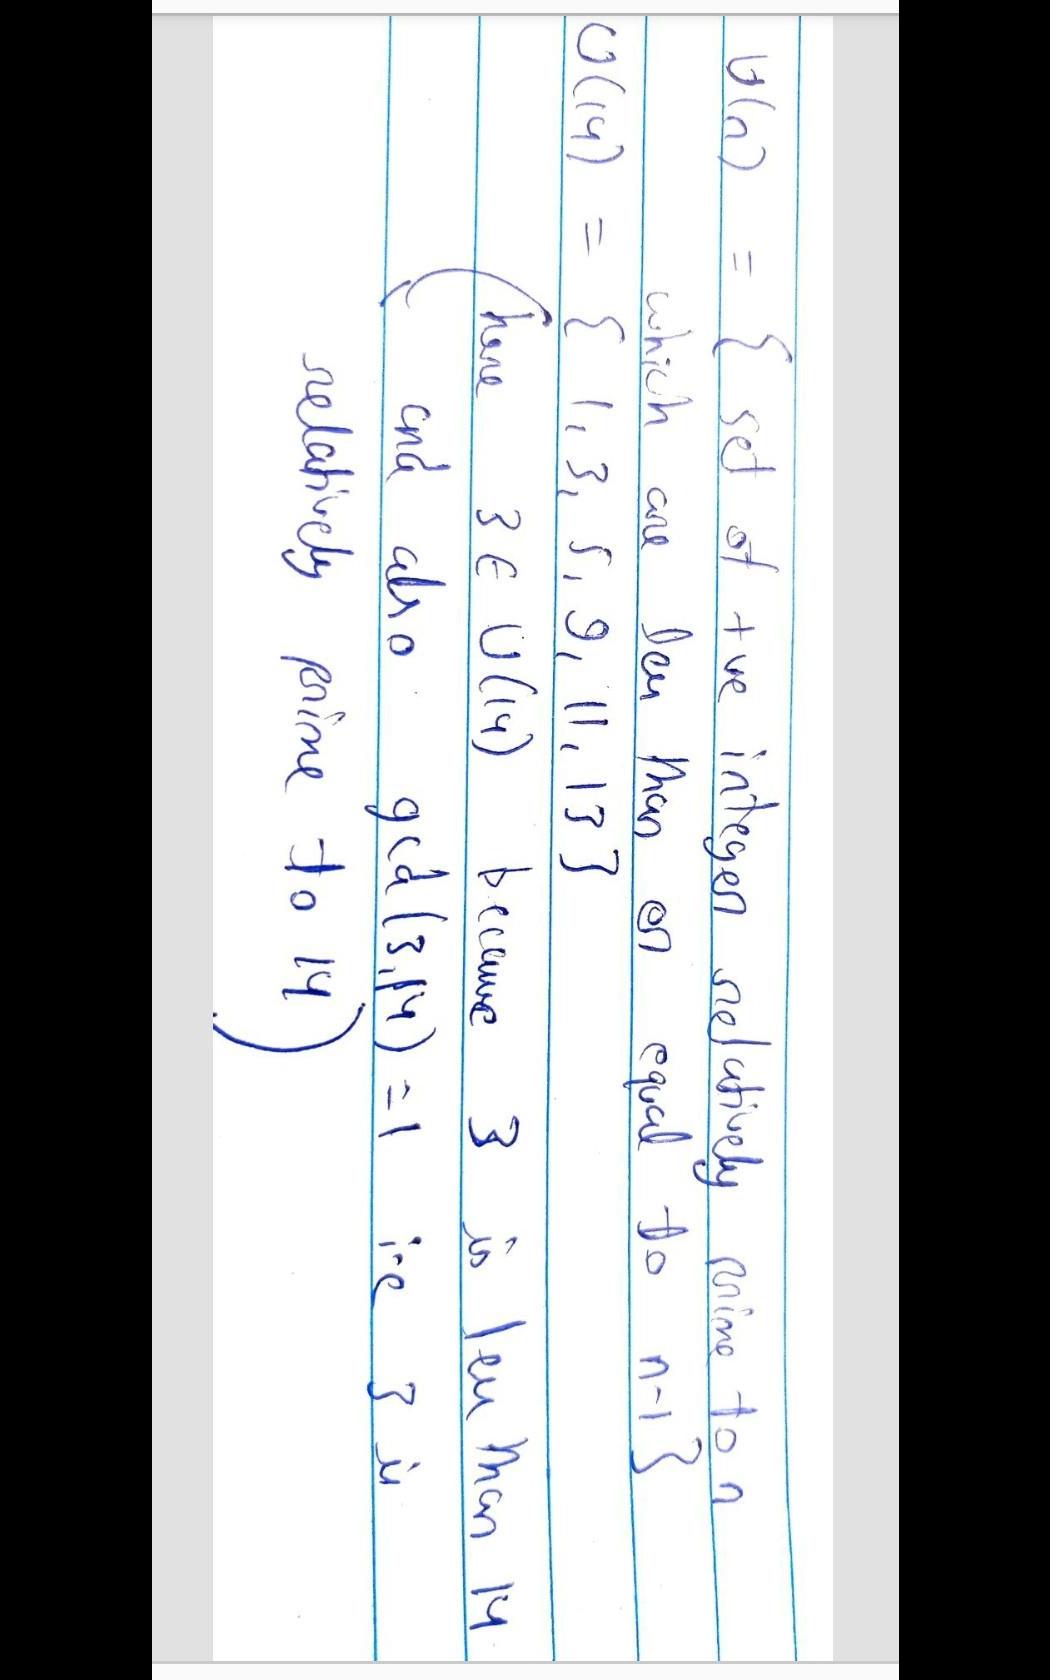 U(n) = { set of +ve integer relatively prime to n
which are less than or equal to n-1 }
U(14) = { 1, 3, 5, 9, 11, 13 }
( here 3 ∈ U(14) because 3 is less than 14
and also gcd(3,14) = 1 i.e 3 is
relatively prime to 14 )